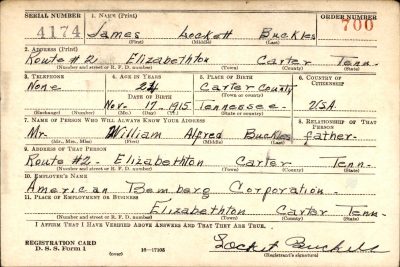 SERIAL NUMBER 1. NAME (Print) ORDER NUMBER
4174 James Lockett Buckles 700
(First) (Middle) (Last)
2. ADDRESS (Print)
Route #2, Elizabethton Carter Tenn.
(Number and street or R. F. D. number) (Town) (County) (State)
3. TELEPHONE 4. AGE IN YEARS 5. PLACE OF BIRTH 6. COUNTRY OF CITIZENSHIP
None 24 Carter County
DATE OF BIRTH (Town or county)
Nov. 17, 1915 Tennessee USA
(Exchange) (Number) (Mo.) (Day) (Yr.) (State or country)
7. NAME OF PERSON WHO WILL ALWAYS KNOW YOUR ADDRESS 8. RELATIONSHIP OF THAT PERSON
Mr. William Alfred Buckles father.
(Mr., Mrs., Miss) (First) (Middle) (Last)
9. ADDRESS OF THAT PERSON
Route #2- Elizabethton Carter Tenn-
(Number and street or R. F. D. number) (Town) (County) (State)
10. EMPLOYER'S NAME
American Bemberg Corporation-
11. PLACE OF EMPLOYMENT OR BUSINESS
Elizabethton Carter Tenn.
(Number and street or R. F. D. number) (Town) (County) (State)
I AFFIRM THAT I HAVE VERIFIED ABOVE ANSWERS AND THAT THEY ARE TRUE.
REGISTRATION CARD
D. S. S. Form 1 (over) 16—17105 Locket Buckels
(Registrant's signature)